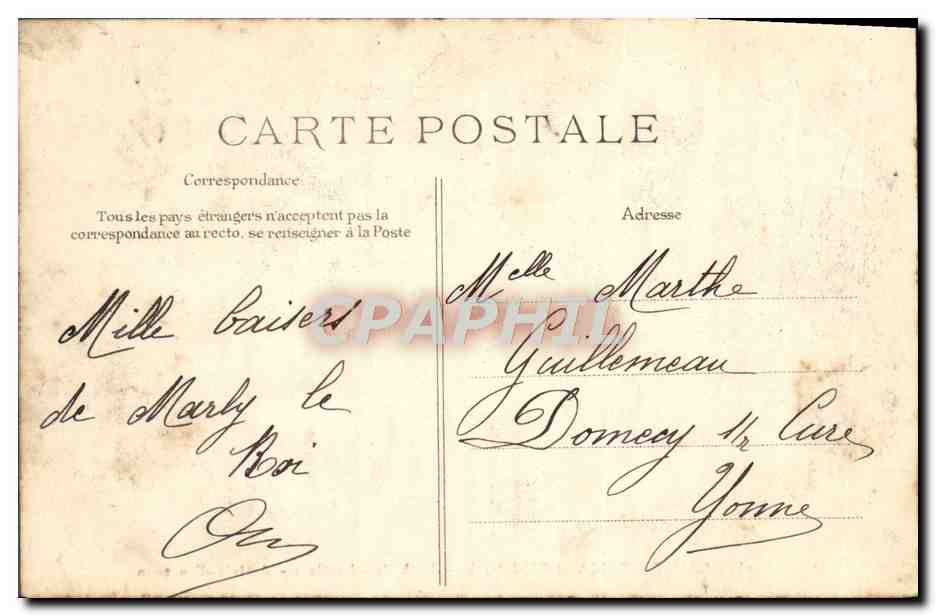 CARTE POSTALE
Correspondance
Tous les pays étrangers n'acceptent pas la
correspondance au recto, se renseigner à la Poste
Mille baisers
de Marly le
Roi
Adresse
Melle Marthe
Guillemeau
Domecy s/r Cure
Yonne
CPAPHIL